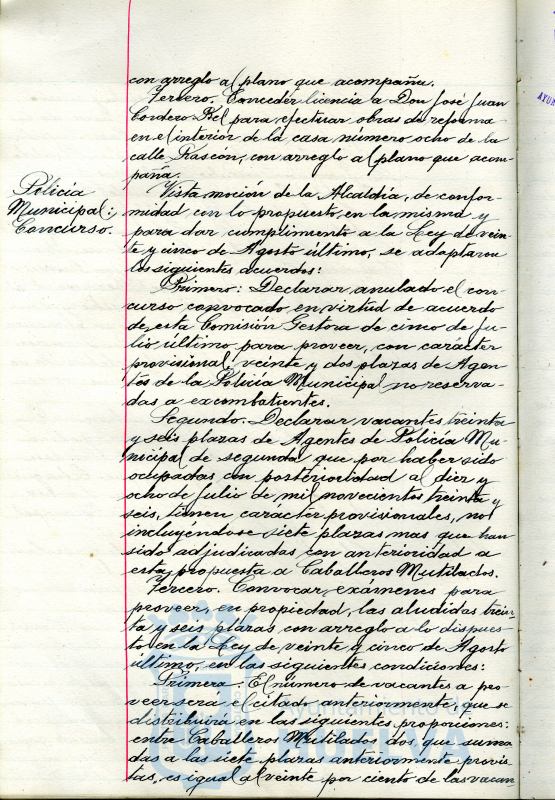 con arreglo al plano que acompaña.
Tercero. Conceder licencia a Don José Juan
Cordero Bel para efectuar obras de reforma
en el interior de la casa número ocho de la
calle Rascón, con arreglo al plano que acom-
paña.
Policía
Municipal:
Concurso.
Vista moción de la Alcaldía, de confor-
midad con lo propuesto en la misma y
para dar cumplimiento a la Ley de vein-
te y cinco de Agosto último, se adoptaron
los siguientes acuerdos:
Primero: Declarar anulado el con-
curso convocado en virtud de acuerdo
de esta Comisión Gestora de cinco de Ju-
lio último para proveer, con carácter
provisional, veinte y dos plazas de Agen-
tes de la Policía Municipal no reserva-
das a excombatientes.
Segundo. Declarar vacantes treinta
y seis plazas de Agentes de Policía Mu-
nicipal de segunda que por haber sido
ocupadas con posterioridad al diez y
ocho de Julio de mil novecientos treinta y
seis, tienen carácter provisionales, no
incluyéndose siete plazas mas que han
sido adjudicadas con anterioridad a
esta propuesta a Caballeros Mutilados.
Tercero. Convocar exámenes para
proveer, en propiedad, las aludidas trein-
ta y seis plazas, con arreglo a lo dispues-
to en la Ley de veinte y cinco de Agosto
último, en las siguientes condiciones:
Primera: El número de vacantes a pro-
veer será el citado anteriormente, que se
distribuirá en las siguientes proporciones:
entre Caballeros Mutilados dos, que suma-
das a las siete plazas anteriormente provis-
tas, es igual al veinte por ciento de las vacan-
HUELVA